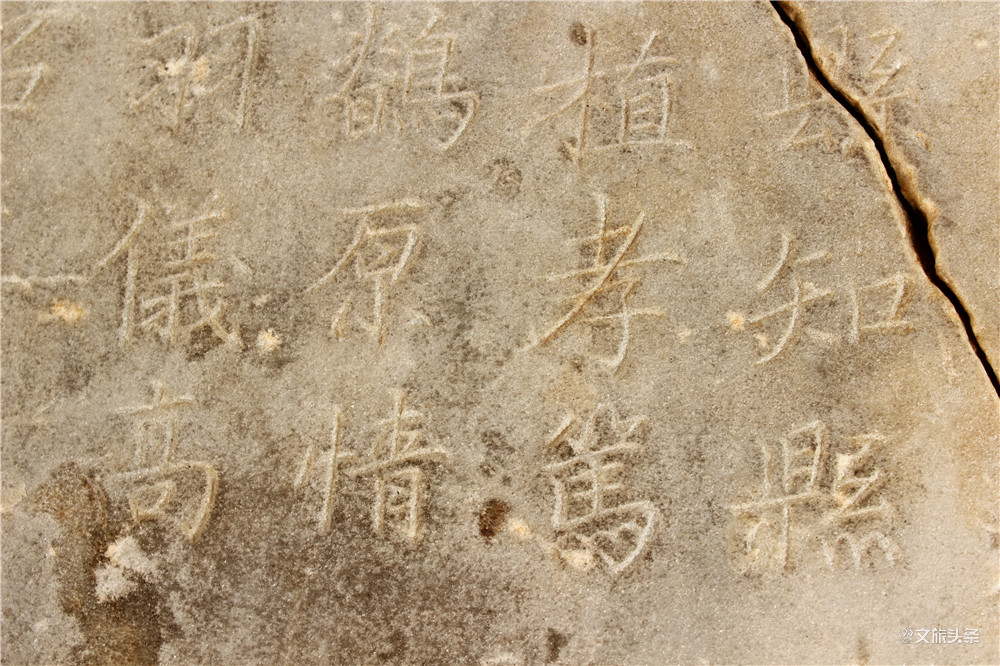 縣知縣
植孝篤
鶺原情
羽儀高
文旅头条